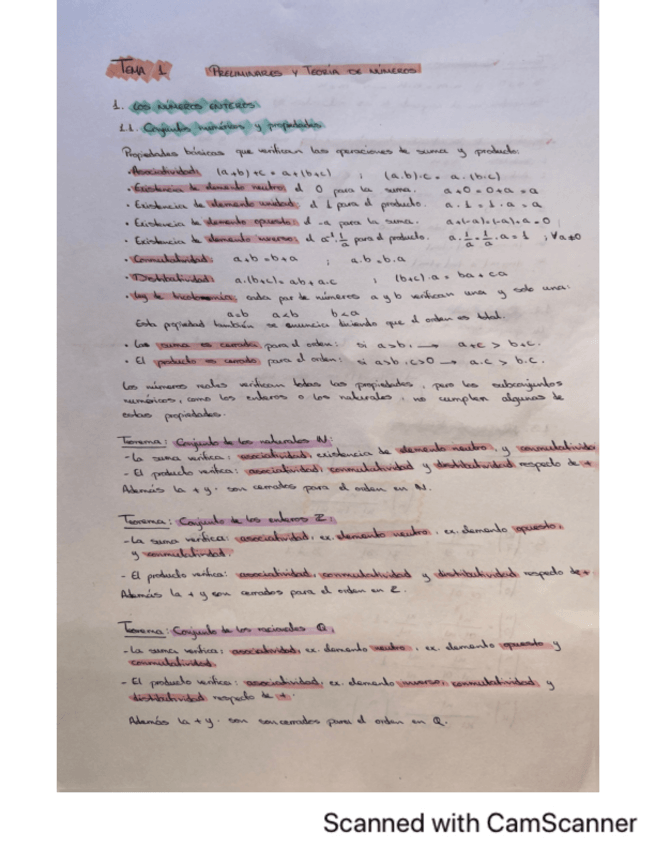 TEMA 1 PRELIMINARES Y TEORÍA DE NÚMEROS
1. LOS NÚMEROS ENTEROS
1.1. Conjuntos numéricos y propiedades
Propiedades básicas que verifican las operaciones de suma y producto:
• Asociatividad (a+b)+c = a+(b+c) ; (a.b).c = a.(b.c)
• Existencia de elemento neutro, el 0 para la suma. a+0=0+a=a
• Existencia de elemento unidad, el 1 para el producto. a.1=1.a=a
• Existencia de elemento opuesto, el -a para la suma. a+(-a)=(-a)+a=0
• Existencia de elemento inverso, el a⁻¹=1/a para el producto. a.1/a=1/a.a=1 ; ∀a≠0
• Conmutatividad a+b=b+a ; a.b=b.a
• Distributividad a.(b+c)=ab+a.c ; (b+c).a=ba+ca
• Ley de tricotomía, cada par de números a y b verifican una y solo una:
a=b a<b b<a
Esta propiedad también se enuncia diciendo que el orden es total.
• La suma es cerrada para el orden: si a>b, → a+c > b+c.
• El producto es cerrado para el orden: si a>b, c>0 → a.c > b.c.
Los números reales verifican todas las propiedades, pero los subconjuntos
numéricos, como los enteros o los naturales, no cumplen algunas de
estas propiedades.
Teorema: Conjunto de los naturales N:
- La suma verifica: asociatividad, existencia de elemento neutro, y conmutativida
- El producto verifica: asociatividad, conmutatividad y distributividad respecto de +
Además la + y . son cerrados para el orden en N.
Teorema: Conjunto de los enteros Z:
- La suma verifica: asociatividad, ex. elemento neutro, ex. elemento opuesto,
y conmutatividad.
- El producto verifica: asociatividad, conmutatividad y distributividad respecto de +
Además la + y son cerrados para el orden en Z.
Teorema: Conjunto de los racionales Q:
- La suma verifica: asociatividad, ex. elemento neutro, ex. elemento opuesto y
conmutatividad.
- El producto verifica: asociatividad, ex. elemento inverso, conmutatividad y
distributividad respecto de +.
Además la + y . son son cerrados para el orden en Q.
Scanned with CamScanner